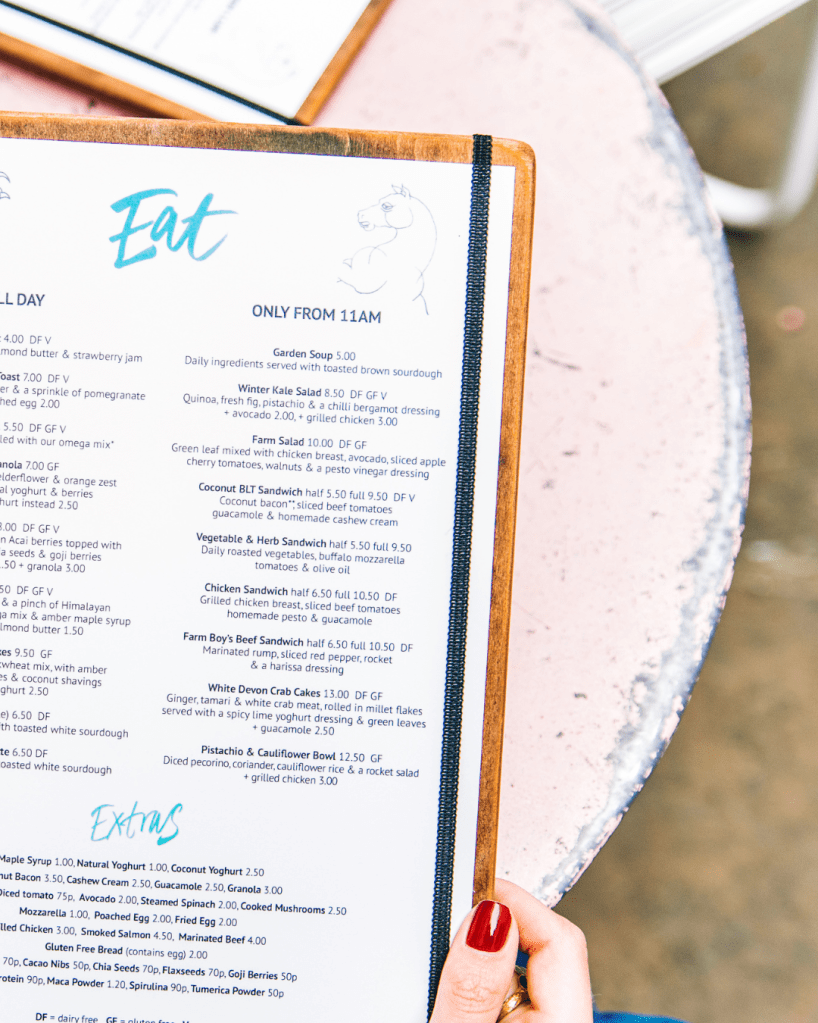 Eat
LL DAY
4.00 DF V
mond butter & strawberry jam
oast 7.00 DF V
er & a sprinkle of pomegranate
hed egg 2.00
5.50 DF GF V
led with our omega mix*
anola 7.00 GF
elderflower & orange zest
al yoghurt & berries
hurt instead 2.50
8.00 DF GF V
n Acai berries topped with
a seeds & goji berries
.50 + granola 3.00
50 DF GF V
& a pinch of Himalayan
ga mix & amber maple syrup
lmond butter 1.50
kes 9.50 GF
kwheat mix, with amber
es & coconut shavings
ghurt 2.50
e) 6.50 DF
ith toasted white sourdough
te 6.50 DF
oasted white sourdough
ONLY FROM 11AM
Garden Soup 5.00
Daily ingredients served with toasted brown sourdough
Winter Kale Salad 8.50 DF GF V
Quinoa, fresh fig, pistachio & a chilli bergamot dressing
+ avocado 2.00, + grilled chicken 3.00
Farm Salad 10.00 DF GF
Green leaf mixed with chicken breast, avocado, sliced apple
cherry tomatoes, walnuts & a pesto vinegar dressing
Coconut BLT Sandwich half 5.50 full 9.50 DF V
Coconut bacon**, sliced beef tomatoes
guacamole & homemade cashew cream
Vegetable & Herb Sandwich half 5.50 full 9.50
Daily roasted vegetables, buffalo mozzarella
tomatoes & olive oil
Chicken Sandwich half 6.50 full 10.50 DF
Grilled chicken breast, sliced beef tomatoes
homemade pesto & guacamole
Farm Boy's Beef Sandwich half 6.50 full 10.50 DF
Marinated rump, sliced red pepper, rocket
& a harissa dressing
White Devon Crab Cakes 13.00 DF GF
Ginger, tamari & white crab meat, rolled in millet flakes
served with a spicy lime yoghurt dressing & green leaves
+ guacamole 2.50
Pistachio & Cauliflower Bowl 12.50 GF
Diced pecorino, coriander, cauliflower rice & a rocket salad
+ grilled chicken 3.00
Extras
Maple Syrup 1.00, Natural Yoghurt 1.00, Coconut Yoghurt 2.50
nut Bacon 3.50, Cashew Cream 2.50, Guacamole 2.50, Granola 3.00
Diced tomato 75p, Avocado 2.00, Steamed Spinach 2.00, Cooked Mushrooms 2.50
Mozzarella 1.00, Poached Egg 2.00, Fried Egg 2.00
lled Chicken 3.00, Smoked Salmon 4.50, Marinated Beef 4.00
Gluten Free Bread (contains egg) 2.00
70p, Cacao Nibs 50p, Chia Seeds 70p, Flaxseeds 70p, Goji Berries 50p
rotein 90p, Maca Powder 1.20, Spirulina 90p, Tumerica Powder 50p
DF = dairy free GF = gluten free